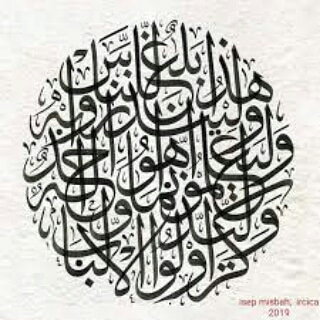 هذا بلاغ للناس
ولينذروا به
وليعلموا أنما هو إله واحد
وليذكر أولوا الألباب
isep misbah, ircica
2019